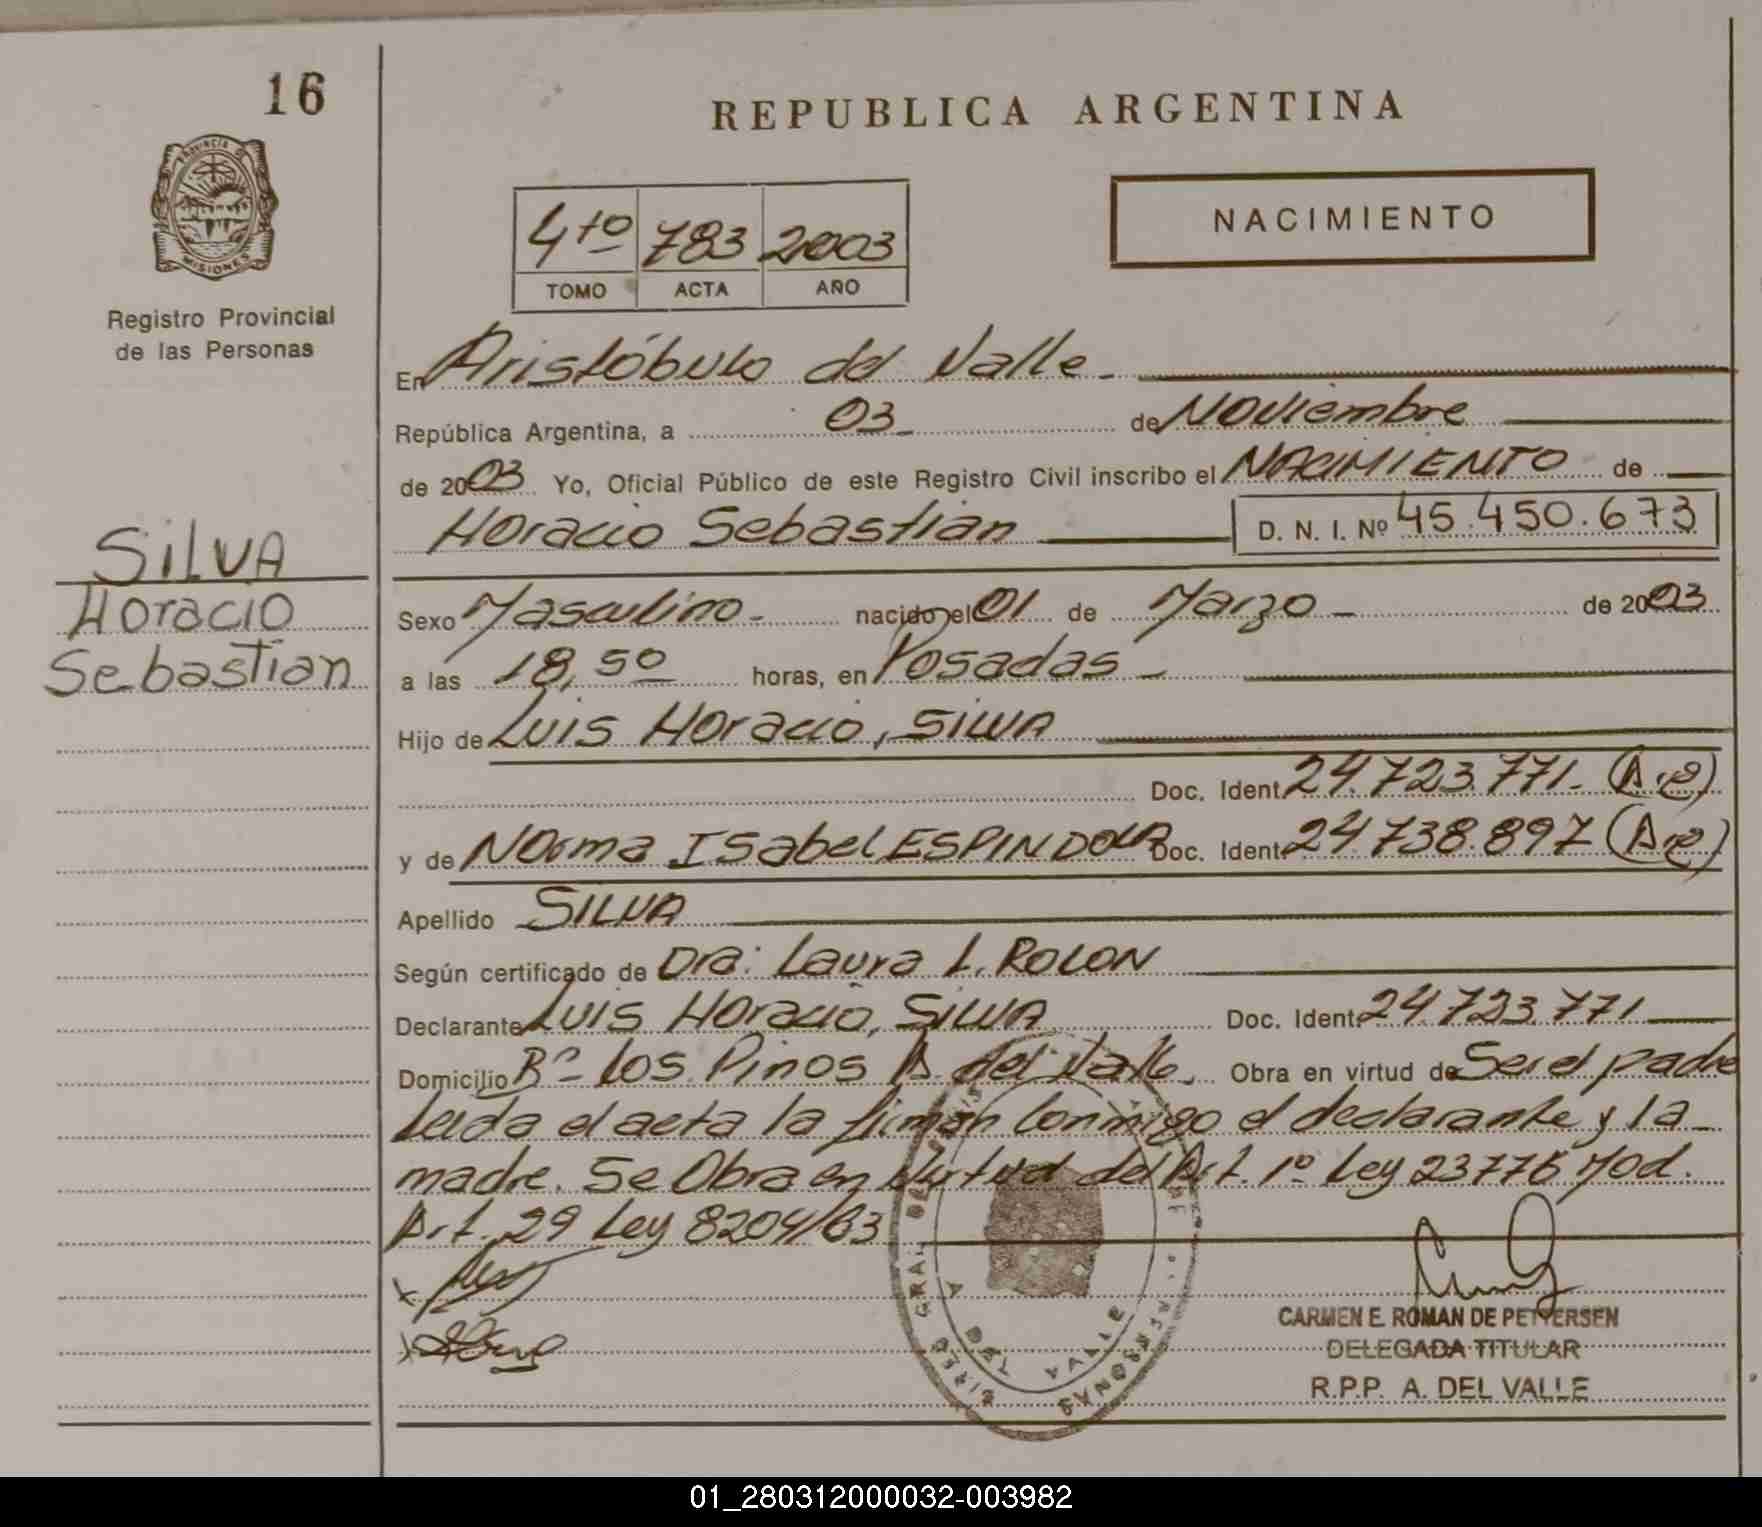 16
REPUBLICA ARGENTINA
PROVINCIA DE
MISIONES
Registro Provincial
de las Personas
4to 783 2003
TOMO ACTA AÑO
NACIMIENTO
En Aristóbulo del Valle
República Argentina, a 03 de Noviembre
de 2003 Yo, Oficial Público de este Registro Civil inscribo el NACIMIENTO de
Horacio Sebastian D. N. I. Nº 45.450.673
SILVA
Horacio
Sebastian
Sexo Masculino nacido el 01 de Marzo de 2003
a las 18,50 horas, en Posadas
Hijo de Luis Horacio, SILVA
Doc. Ident. 24.723.771
y de Norma Isabel ESPINDOLA Doc. Ident. 24.738.897
Apellido SILVA
Según certificado de Dra: Laura L. ROLON
Declarante Luis Horacio, SILVA Doc. Ident. 24.723.771
Domicilio Bº Los Pinos A. del Valle. Obra en virtud de Ser el padre
Leida el acta la firman conmigo el declarante y la
madre. Se Obra en virtud del Art. 1º Ley 23776 Mod.
Art. 29 Ley 8204/63
A DEL VALLE
CARMEN E. ROMAN DE PETTERSEN
DELEGADA TITULAR
R.P.P. A. DEL VALLE
01_280312000032-003982